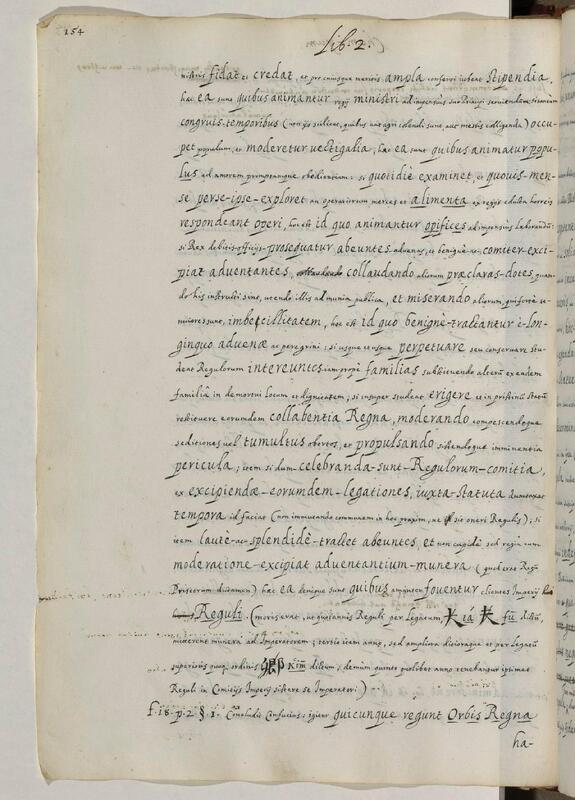 154
lib. 2.
nistris fidat et credat, et pro cuiusque meritis ampla conferri iubeat Stipendia,
hac ea sunt quibus animantur regij ministri ad impensius suo Principi serviendum: si autem
congruis temporibus (non ijs scilicet, quibus aut agri colendi sunt aut messis colligenda) occu-
pet populum, et moderetur vectigalia, hac ea sunt quibus animatur popu-
lus ad amorem promptamque obedientiam: si quotidiè examinet, et quovis men-
se per se ipse exploret an operariorum merces et alimenta ex regijs edulia horreis
respondeant operi, hoc est id quo animantur opifices ad impensius laborandum:
si Rex debitis officijs prosequatur abeuntes advenas, et benignè ac comiter exci-
piat adventantes, collaudando aliorum præclaras dotes, quan-
do his instructi sint, vocando illis ad munia publica, et miserando aliorum, qui forte
imbecillitatem, hoc est id quo benignè tractantur è lon-
ginquo advenæ ac peregrini: si usque perpetuare seu conservare stu-
deat Regulorum intereuntes iam propè familias substituendo alterum ex eadem
familia in demortui locum et dignitatem; si insuper studeat erigere et in pristinum Statum
restituere eorumdem collabentia Regna, moderando compescendoque
seditiones vel tumultus obortos, et propulsando sistendoque imminentia
pericula; item si dum celebranda sunt Regulorum comitia,
et excipiendæ eorumdem legationes, iuxta statuta dumtaxat
tempora id faciat (non immutando communem in hoc praxim, ne sit oneri Regulis); si
item lautè ac splendidè tractet abeuntes, et non cupidè sed regia cum
moderatione excipiat adventantium munera (quod erat
Priscorum dictamen) hac ea denique sunt quibus foventur clientes Imperij
Reguli. (moris erat, ut quotannis Reguli per Legatum, 大 iá 夫 fū dictum,
mitterent munera ad Imperatorem; tertio item anno, sed ampliora ditioraque et per Legatum
superioris ordinis 卿 Kim dictum; demum quinto quolibet anno tenebantur ipsimet
Reguli in Comitijs Imperij sistere se Imperatori.)
f. 18. p. 2. §. 1. Concludit Confucius: igitur quicunque regunt Orbis Regna
ha-